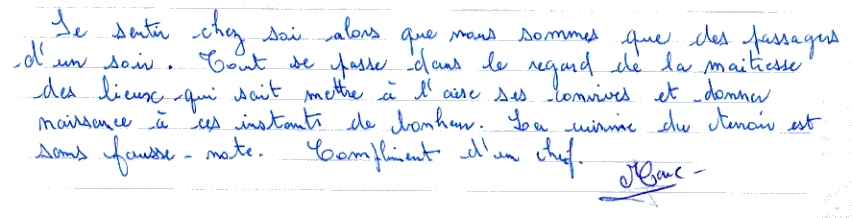 Se sentir chez soi alors que nous sommes que des passagers
d'un soir. Tout se passe dans le regard de la maitresse
des lieux qui sait mettre à l'aise ses convives et donner
naissance à ces instants de bonheur. La cuisine du terroir est
sans fausse-note. Compliment d'un chef.
Marc